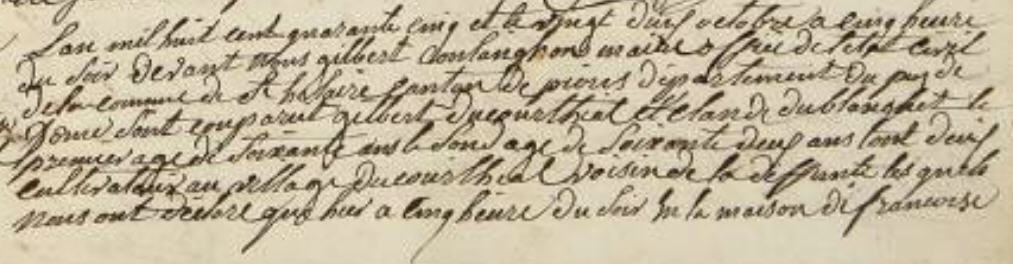 L'an mil huit cent quarante cinq et le vingt deux octobre a cinq heure
du soir devant nous gilbert Coulanghon maire officié de l'etat civil
de la commune de St hilaire canton de pions  département du puy de
Dome sont comparut gilbert ducourthial et Claude dublanchet le
premier age de soixante ans le second age de soixante deux ans tout deux
cultivateur au village Ducourthial voisin de la deffunte les quels
nous ont déclaré que hier a cinq heure du soir en la maison de francoise